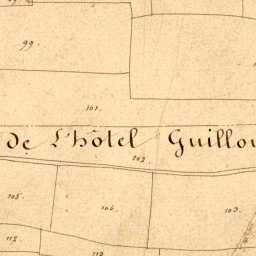 99.
101.
De L'hôtel Guillou
102.
105.
104.
103.
112.
111.